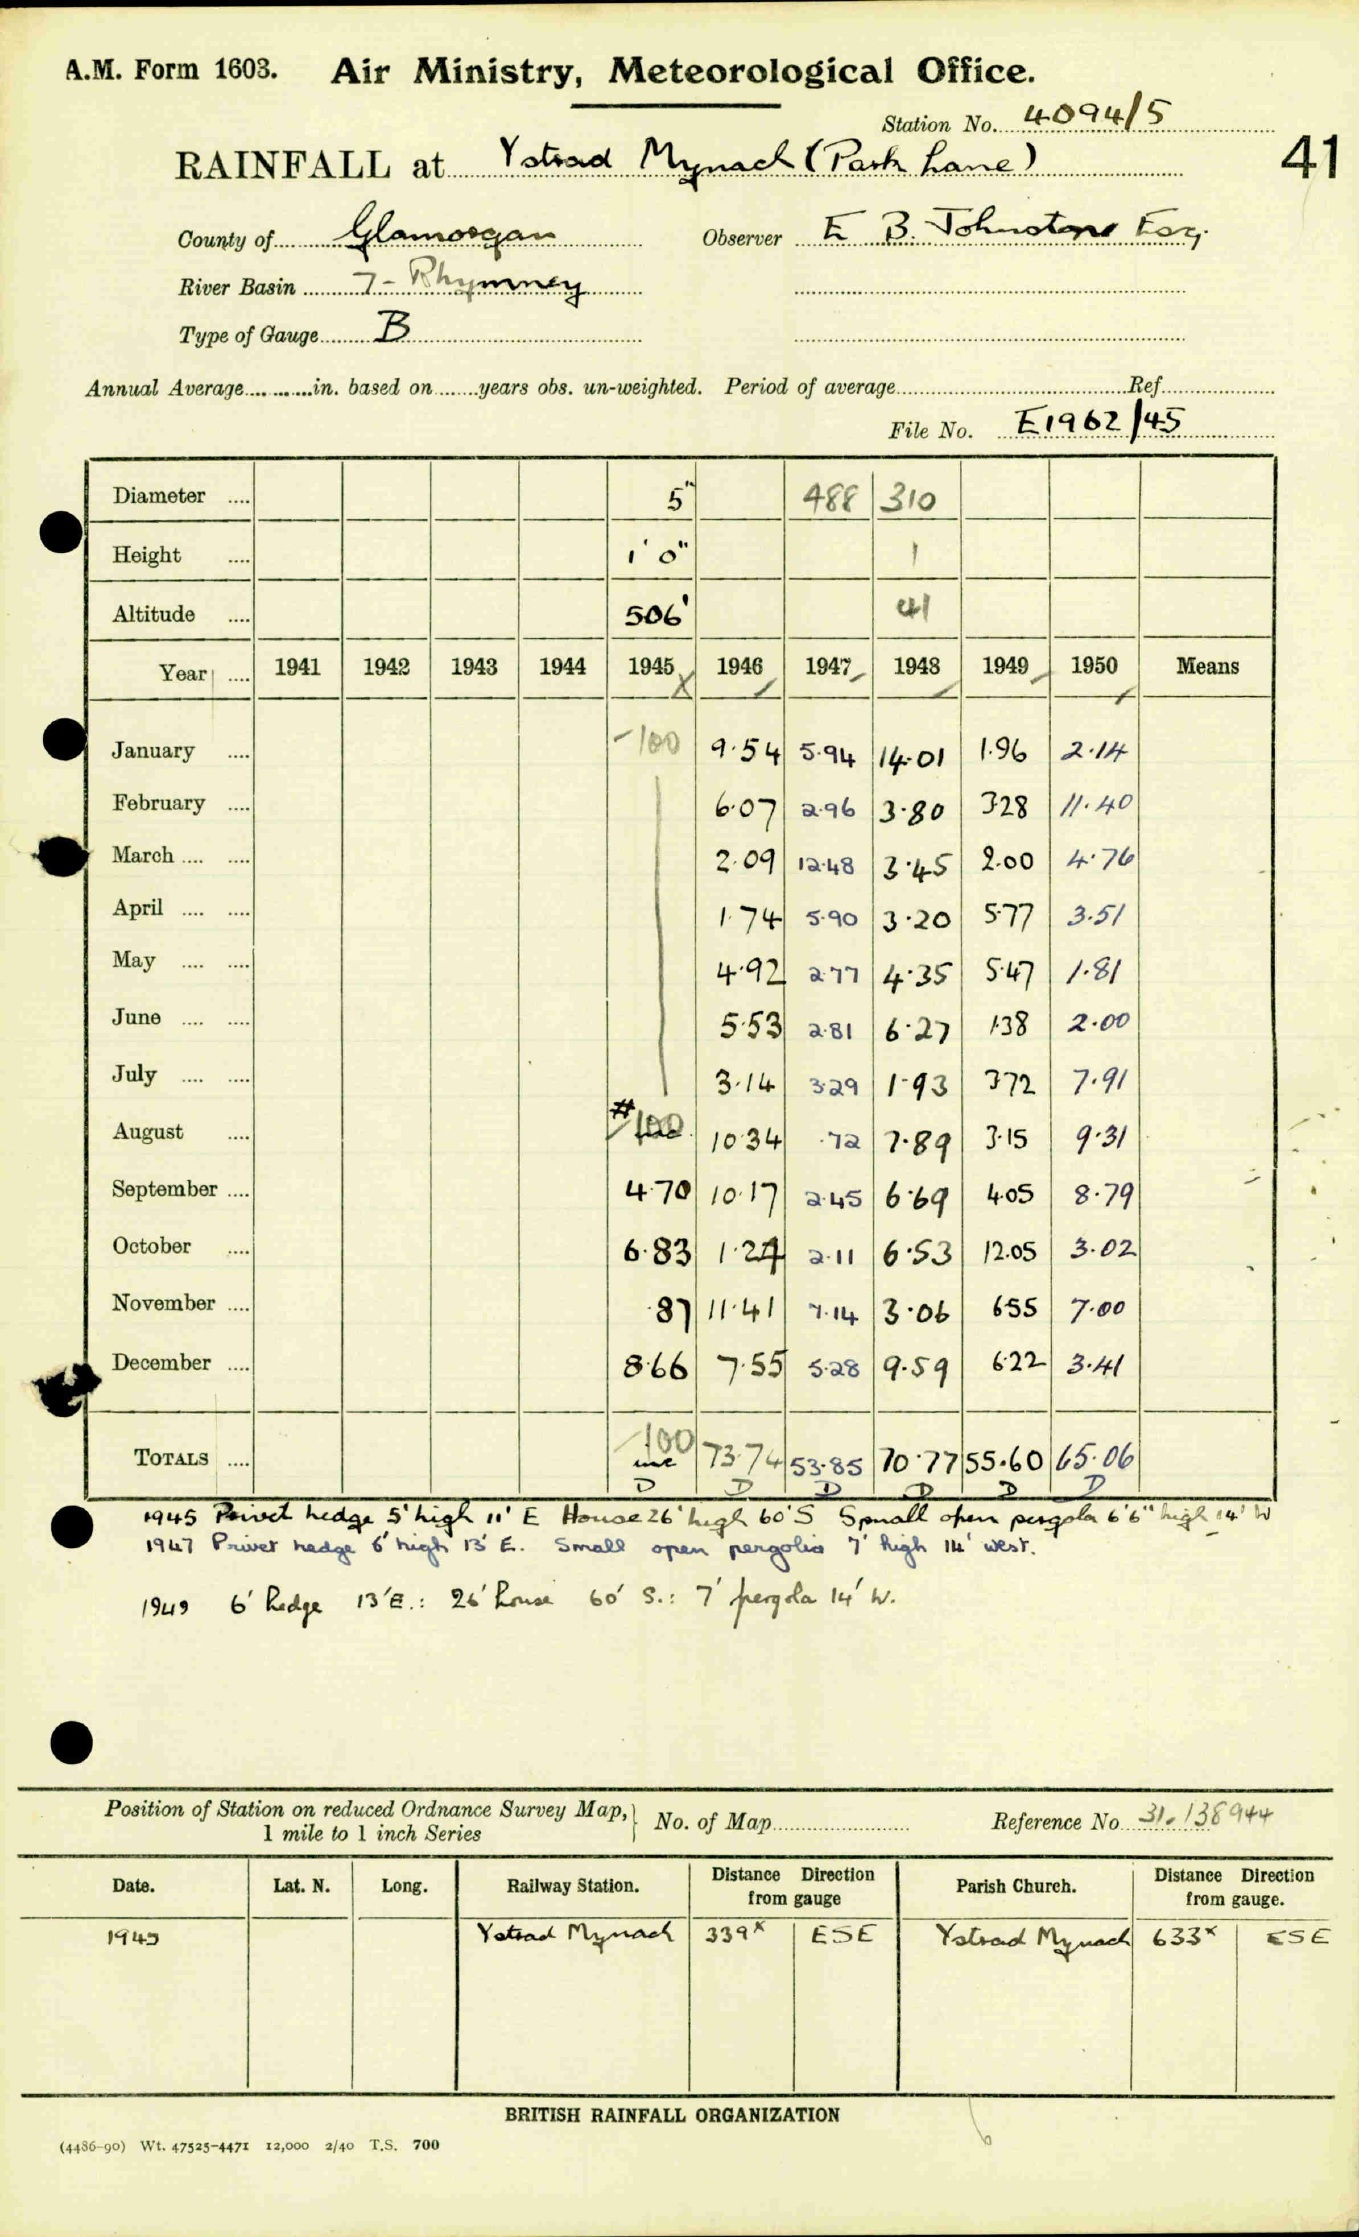 A.M. Form 1603. Air Ministry, Meteorological Office.
Station No. 4094/5
41
RAINFALL at Ystrad Mynach (Park Lane)
County of Glamorgan Observer E B. Johnstone Esq.
River Basin 7 - Rhymney
Type of Gauge B
Annual Average in. based on years obs. un-weighted. Period of average Ref.
File No. E1962/45
Diameter 5" 488 310
Height 1' 0" 1
Altitude 506' 41
Year 1941 1942 1943 1944 1945 1946 1947 1948 1949 1950 Means
January -100 9.54 5.94 14.01 1.96 2.14
February 6.07 2.96 3.80 3.28 11.40
March 2.09 12.48 3.45 2.00 4.76
April 1.74 5.90 3.20 5.77 3.51
May 4.92 2.77 4.35 5.47 1.81
June 5.53 2.81 6.27 1.38 2.00
July 3.14 3.29 1.93 3.72 7.91
August # -100 10.34 .72 7.89 3.15 9.31
September 4.70 10.17 2.45 6.69 4.05 8.79
October 6.83 1.24 2.11 6.53 12.05 3.02
November .87 11.41 7.14 3.06 6.55 7.00
December 8.66 7.55 5.28 9.59 6.22 3.41
TOTALS -100 inc 73.74 53.85 70.77 55.60 65.06
D D D D D D
1945 Privet hedge 5' high 11' E House 26' high 60' S Small open pergola 6'6" high 14' W
1947 Privet hedge 6' high 13' E. Small open pergolia 7' high 14' west.
1949 6' hedge 13' E.: 26' house 60' S.: 7' pergola 14' W.
Position of Station on reduced Ordnance Survey Map, 1 mile to 1 inch Series No. of Map Reference No 31.138944
Date. Lat. N. Long. Railway Station. Distance Direction from gauge Parish Church. Distance Direction from gauge.
1945 Ystrad Mynach 339x ESE Ystrad Mynach 633x ESE
BRITISH RAINFALL ORGANIZATION
(4486-90) Wt. 47525-4471 12,000 2/40 T.S. 700